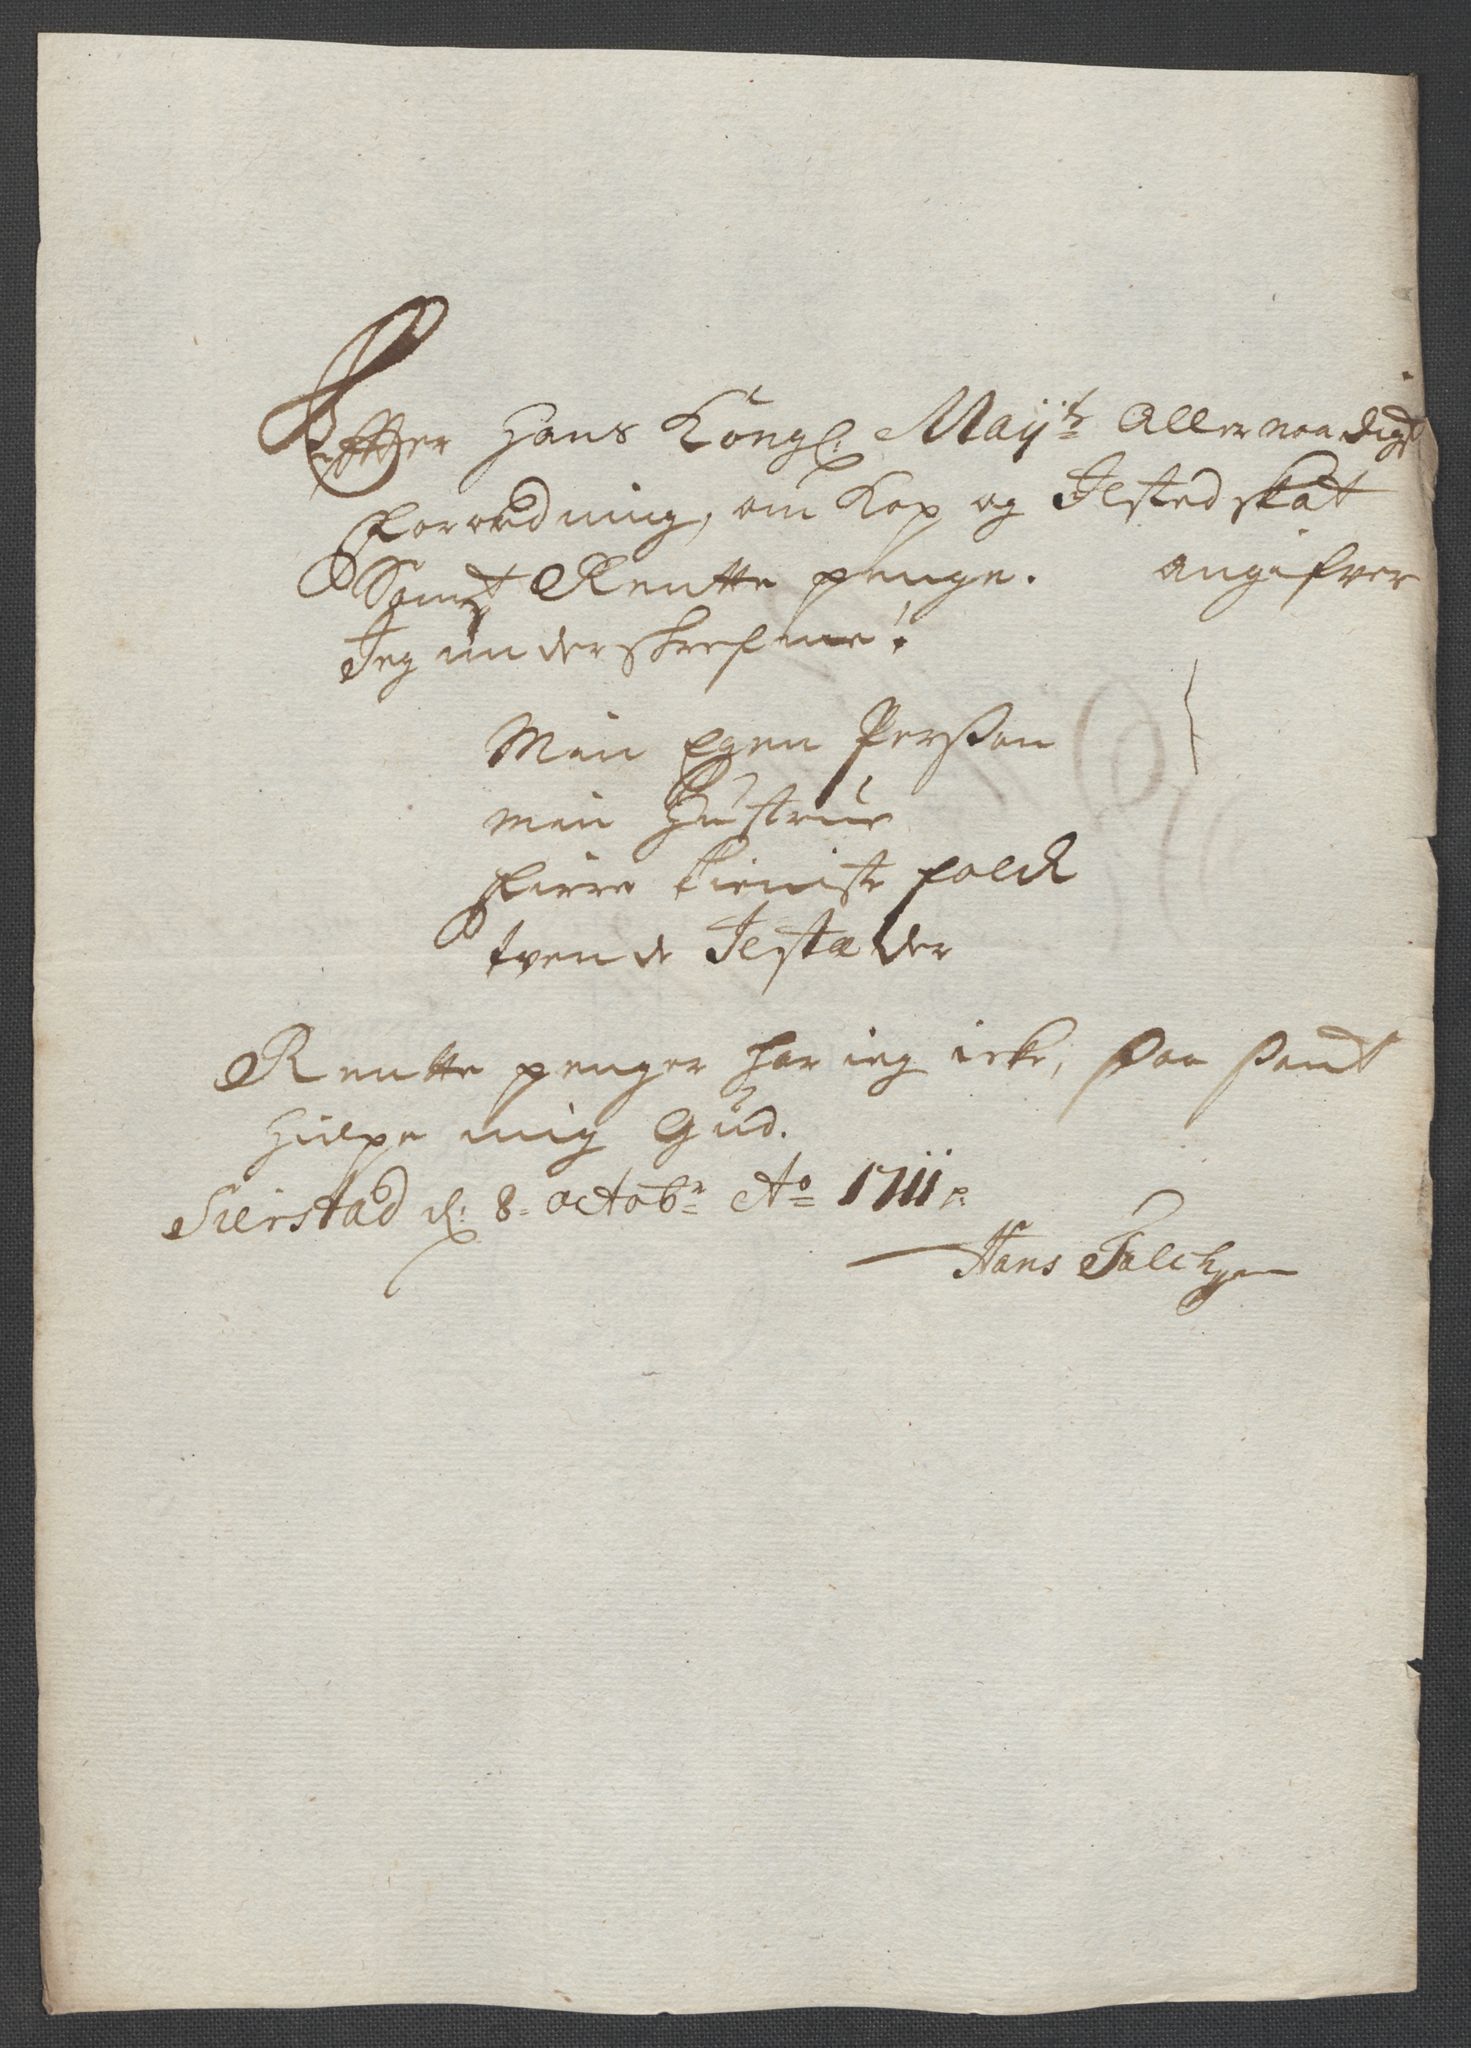 Efter Hans Kongl: Maÿtz Allernaadigst
Forordning, om Kop og Ilsted skat
Sampt Rentte penge. angifver
Jeg underskrefne!
Min Egen Person
min Hustrue
Firre tieniste folck
tvende Ilstæder
Rentte penger har ieg icke, saa sandt
hielpe mig Gud.
d: 8. octobr Ao 1711
Hans Falch